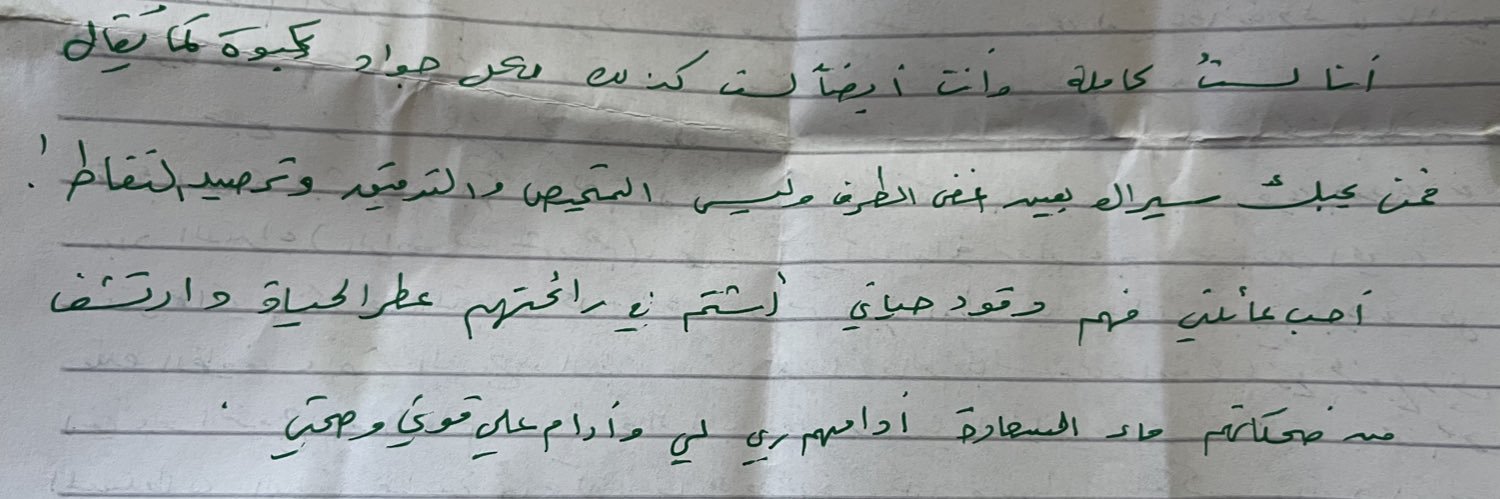 أنا لستُ كاملة وأنت أيضاً لست كذلك ولكل جواد كبوة كما يُقال
فمن يحبك سيراك بعين غض الطرف وليس التمحيص والتدقيق وترصيد التقاط !
أحب عائلتي فهم وقود حياتي أشتم في رائحتهم عطر الحياة وارتشف
من ضحكاتهم ماء السعادة أدامهم ربي لي وأدام علي قوتي وصحتي .